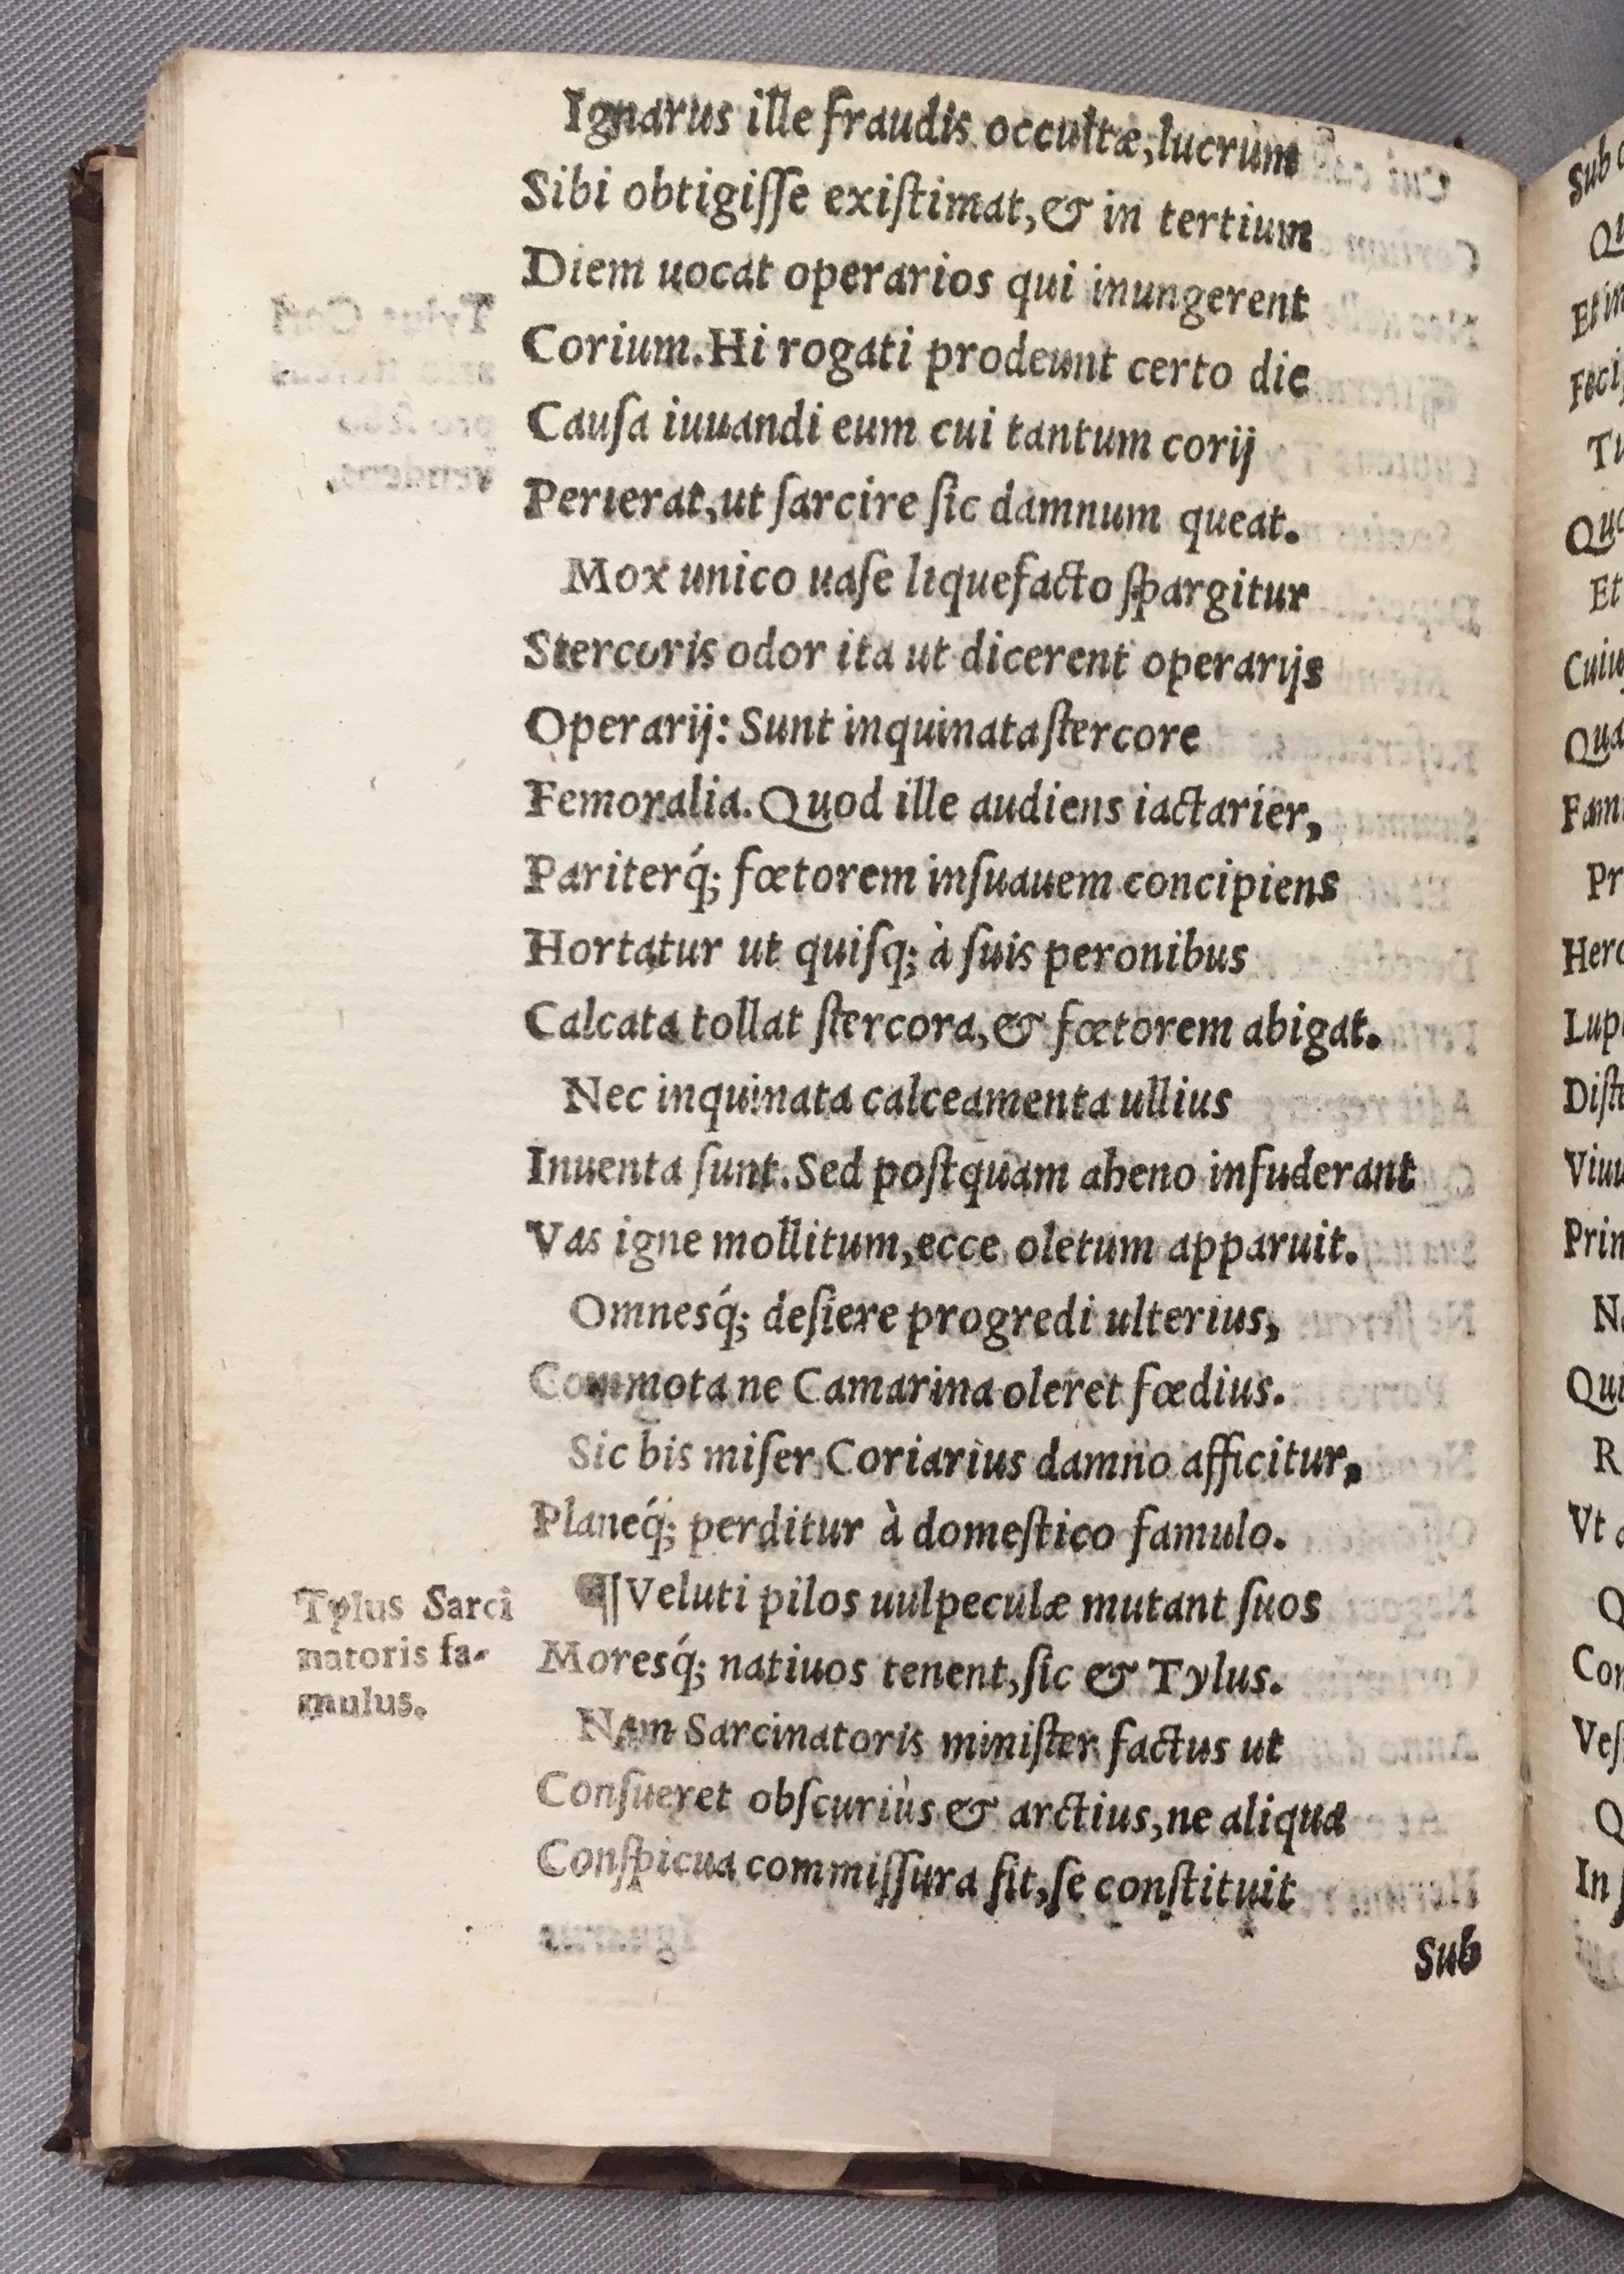 Ignarus ille fraudis occultæ, lucrum
Sibi obtigiſſe exiſtimat, & in tertium
Diem uocat operarios qui inungerent
Corium. Hi rogati prodeunt certo die
Cauſa iuuandi eum cui tantum corij
Perierat, ut ſarcire ſic damnum queat.
Mox unico uaſe liquefacto ſpargitur
Stercoris odor ita ut dicerent operarijs
Operarij: Sunt inquinata ſtercore
Femoralia. Quod ille audiens iactarier,
Pariterq́; fœtorem inſuauem concipiens
Hortatur ut quiſq; à ſuis peronibus
Calcata tollat ſtercora, & fœtorem abigat.
Nec inquinata calceamenta ullius
Inuenta ſunt. Sed poſtquam aheno infuderant
Vas igne mollitum, ecce oletum apparuit.
Omnesq́; deſiere progredi ulterius,
Commota ne Camarina oleret fœdius.
Sic bis miſer Coriarius damno afficitur,
Planeq́; perditur à domeſtico famulo.
¶ Veluti pilos uulpeculæ mutant ſuos
Tylus Sarci
natoris fa-
mulus.
Moresq́; natiuos tenent, ſic & Tylus.
Nam Sarcinatoris miniſter factus ut
Conſueret obſcuriùs & arctius, ne aliqua
Conſpicua commiſſura ſit, ſe conſtituit
Sub